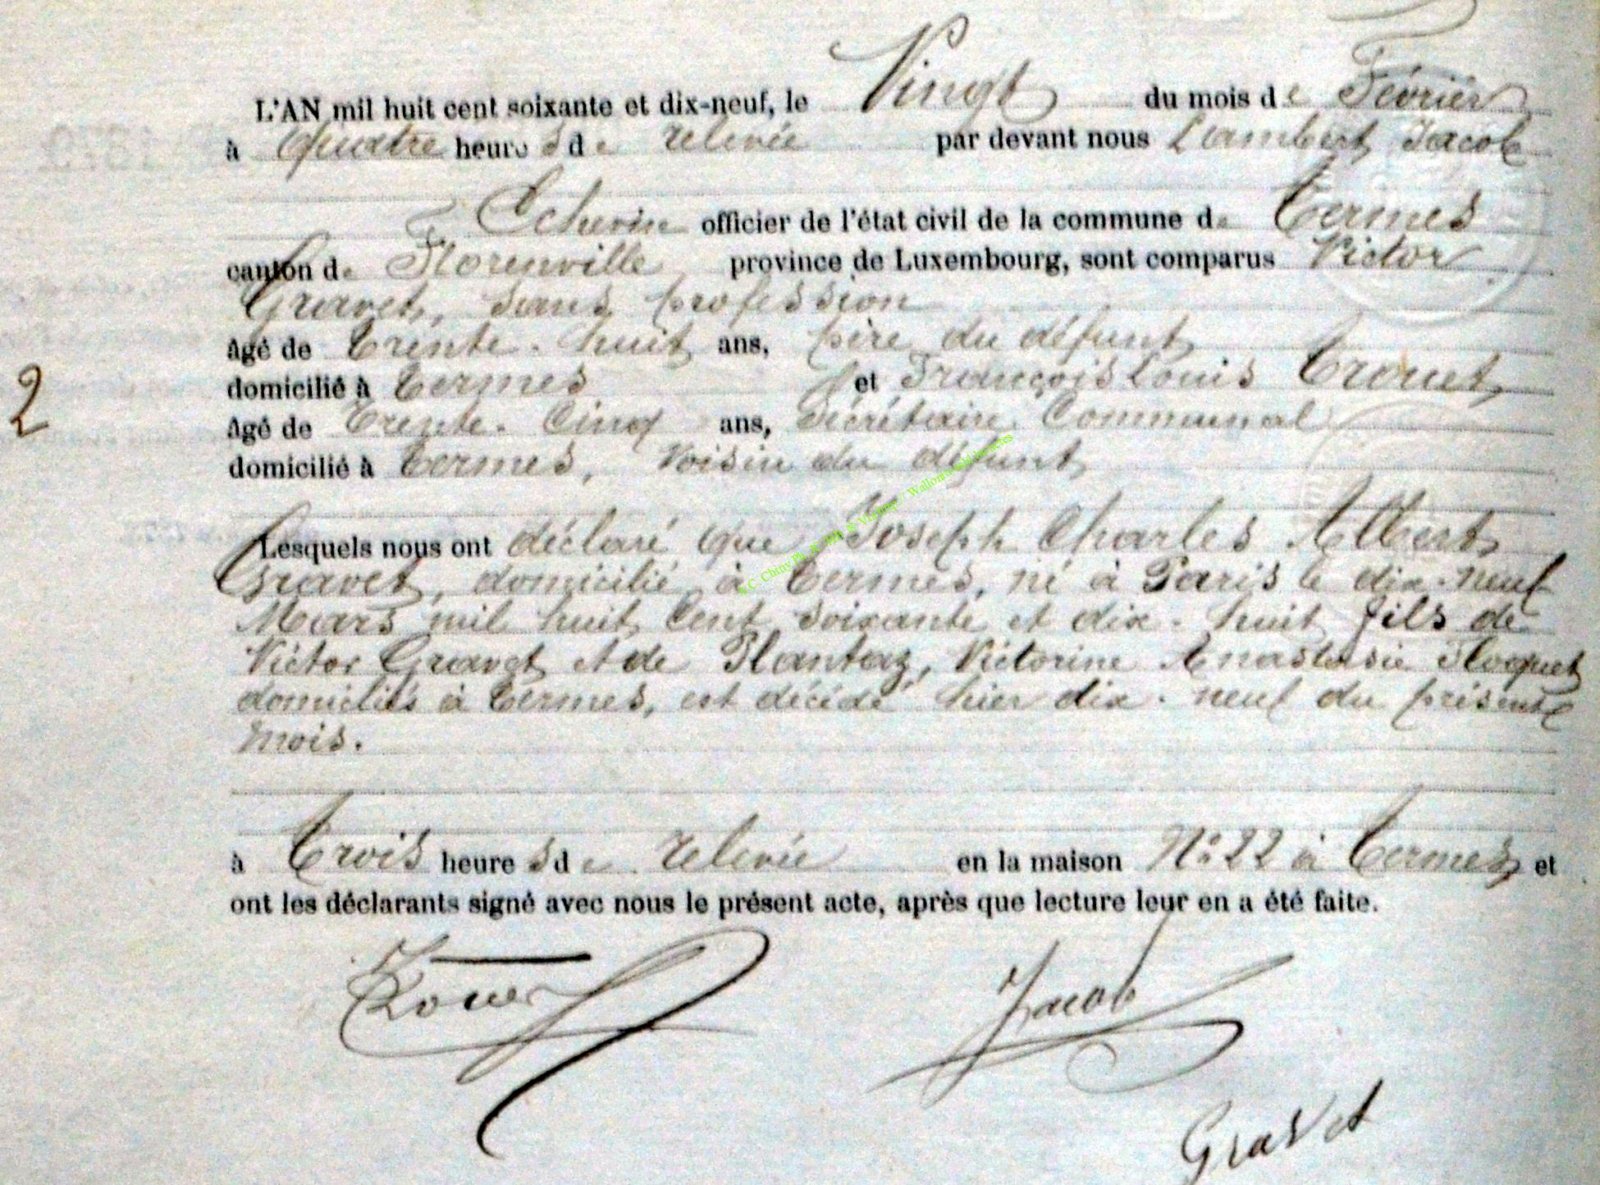 L'AN mil huit cent soixante et dix-neuf, le Vingt du mois de Février
à quatre heures de relevée par devant nous Lambert Jacob
Echevin officier de l'état civil de la commune de Termes
canton de Florenville province de Luxembourg, sont comparus Victor
Gravet, sans profession
âgé de trente-huit ans, père du défunt
domicilié à Termes et François Louis Trouet,
âgé de trente-cinq ans, Sécrétaire Communal
domicilié à Termes, Voisin du défunt
Lesquels nous ont déclaré que Joseph Charles Albert
Gravet, domicilié à Termes, né à Paris le dix-neuf
Mars mil huit Cent soixante et dix-huit fils de
Victor Gravet et de Plantaz, Victorine Anastasie Floquet
domiciliés à Termes, est décédé hier dix-neuf du présent
mois.
2
à Trois heures de relevée en la maison N° 22 à Termes et
ont les déclarants signé avec nous le présent acte, après que lecture leur en a été faite.
Trouet Jacob
Gravet